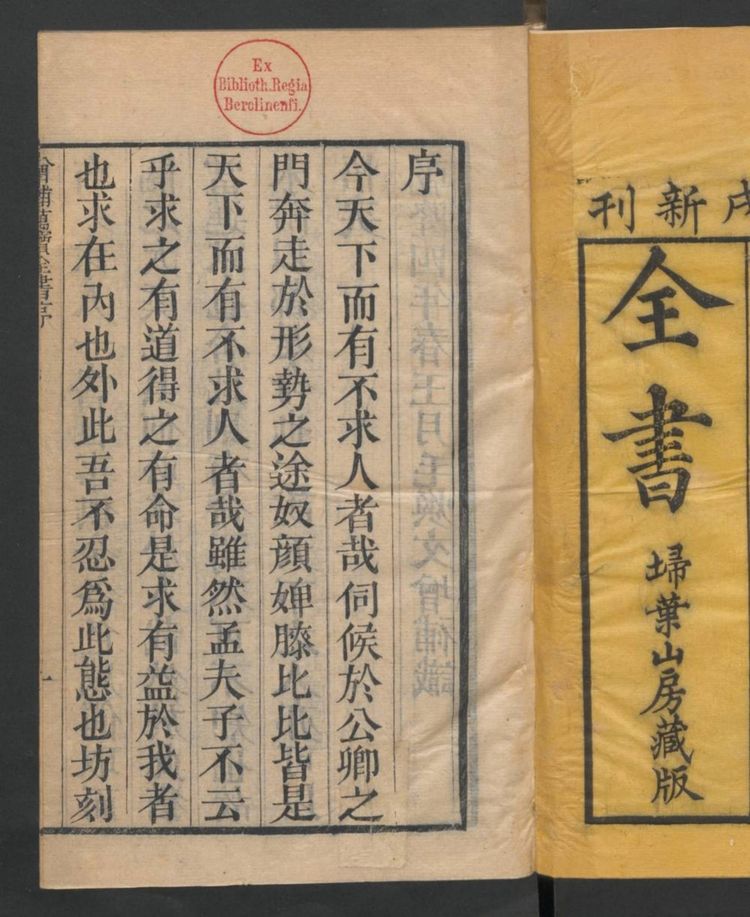 戌新刊
全書
埽葉山房藏版
Ex
Biblioth.Regia
Berolinenſi.
序
今天下而有不求人者哉伺候於公卿之
門奔走於形勢之途奴顔婢膝比比皆是
天下而有不求人者哉雖然孟夫子不云
乎求之有道得之有命是求有益於我者
也求在內也外此吾不忍爲此態也坊刻